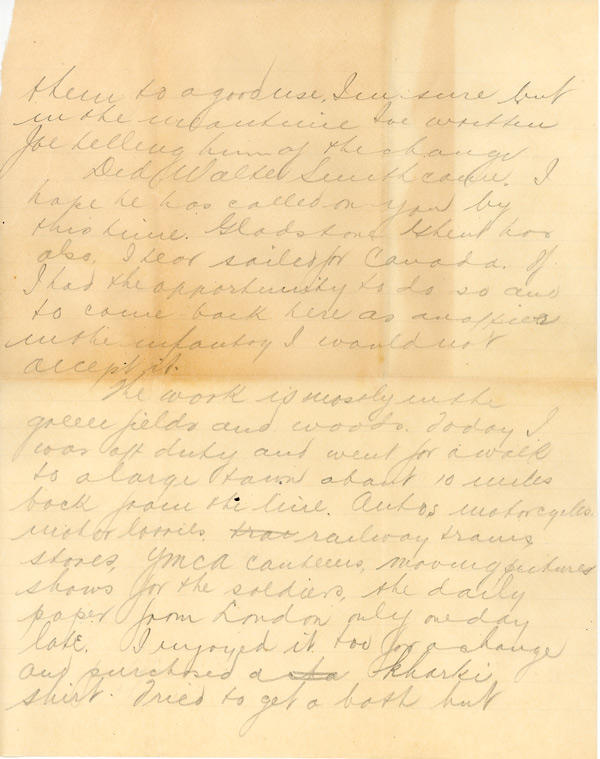 them to a good use, I'm sure but
in the meantime I've written
Joe telling him of the change
Did Walter Smith come. I
hope he has called on you by
this time. Gladstone Ghent has
also, I hear sailed for Canada. If
I had the opportunity to do so and
to come back here as an officer
in the infantry I would not
accept it.
The work is mostly in the
green fields and woods. Today I
was off duty and went for a walk
to a large town about 10 miles
back from the line. Autos, motorcycles
motor lorries, trai railway trains,
stores, YMCA canteens, moving pictures
shows for the soldiers, the daily
paper from London only one day
late. I enjoyed it too for a change
and purchased a kharki
shirt. Tried to get a bath but